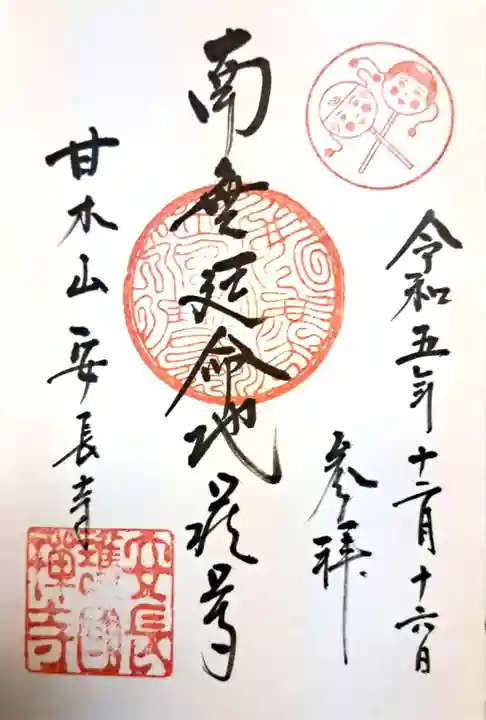 令和五年十二月十六日
参拝
南無延命地蔵尊
甘木山安長寺
安長
護国
禅寺